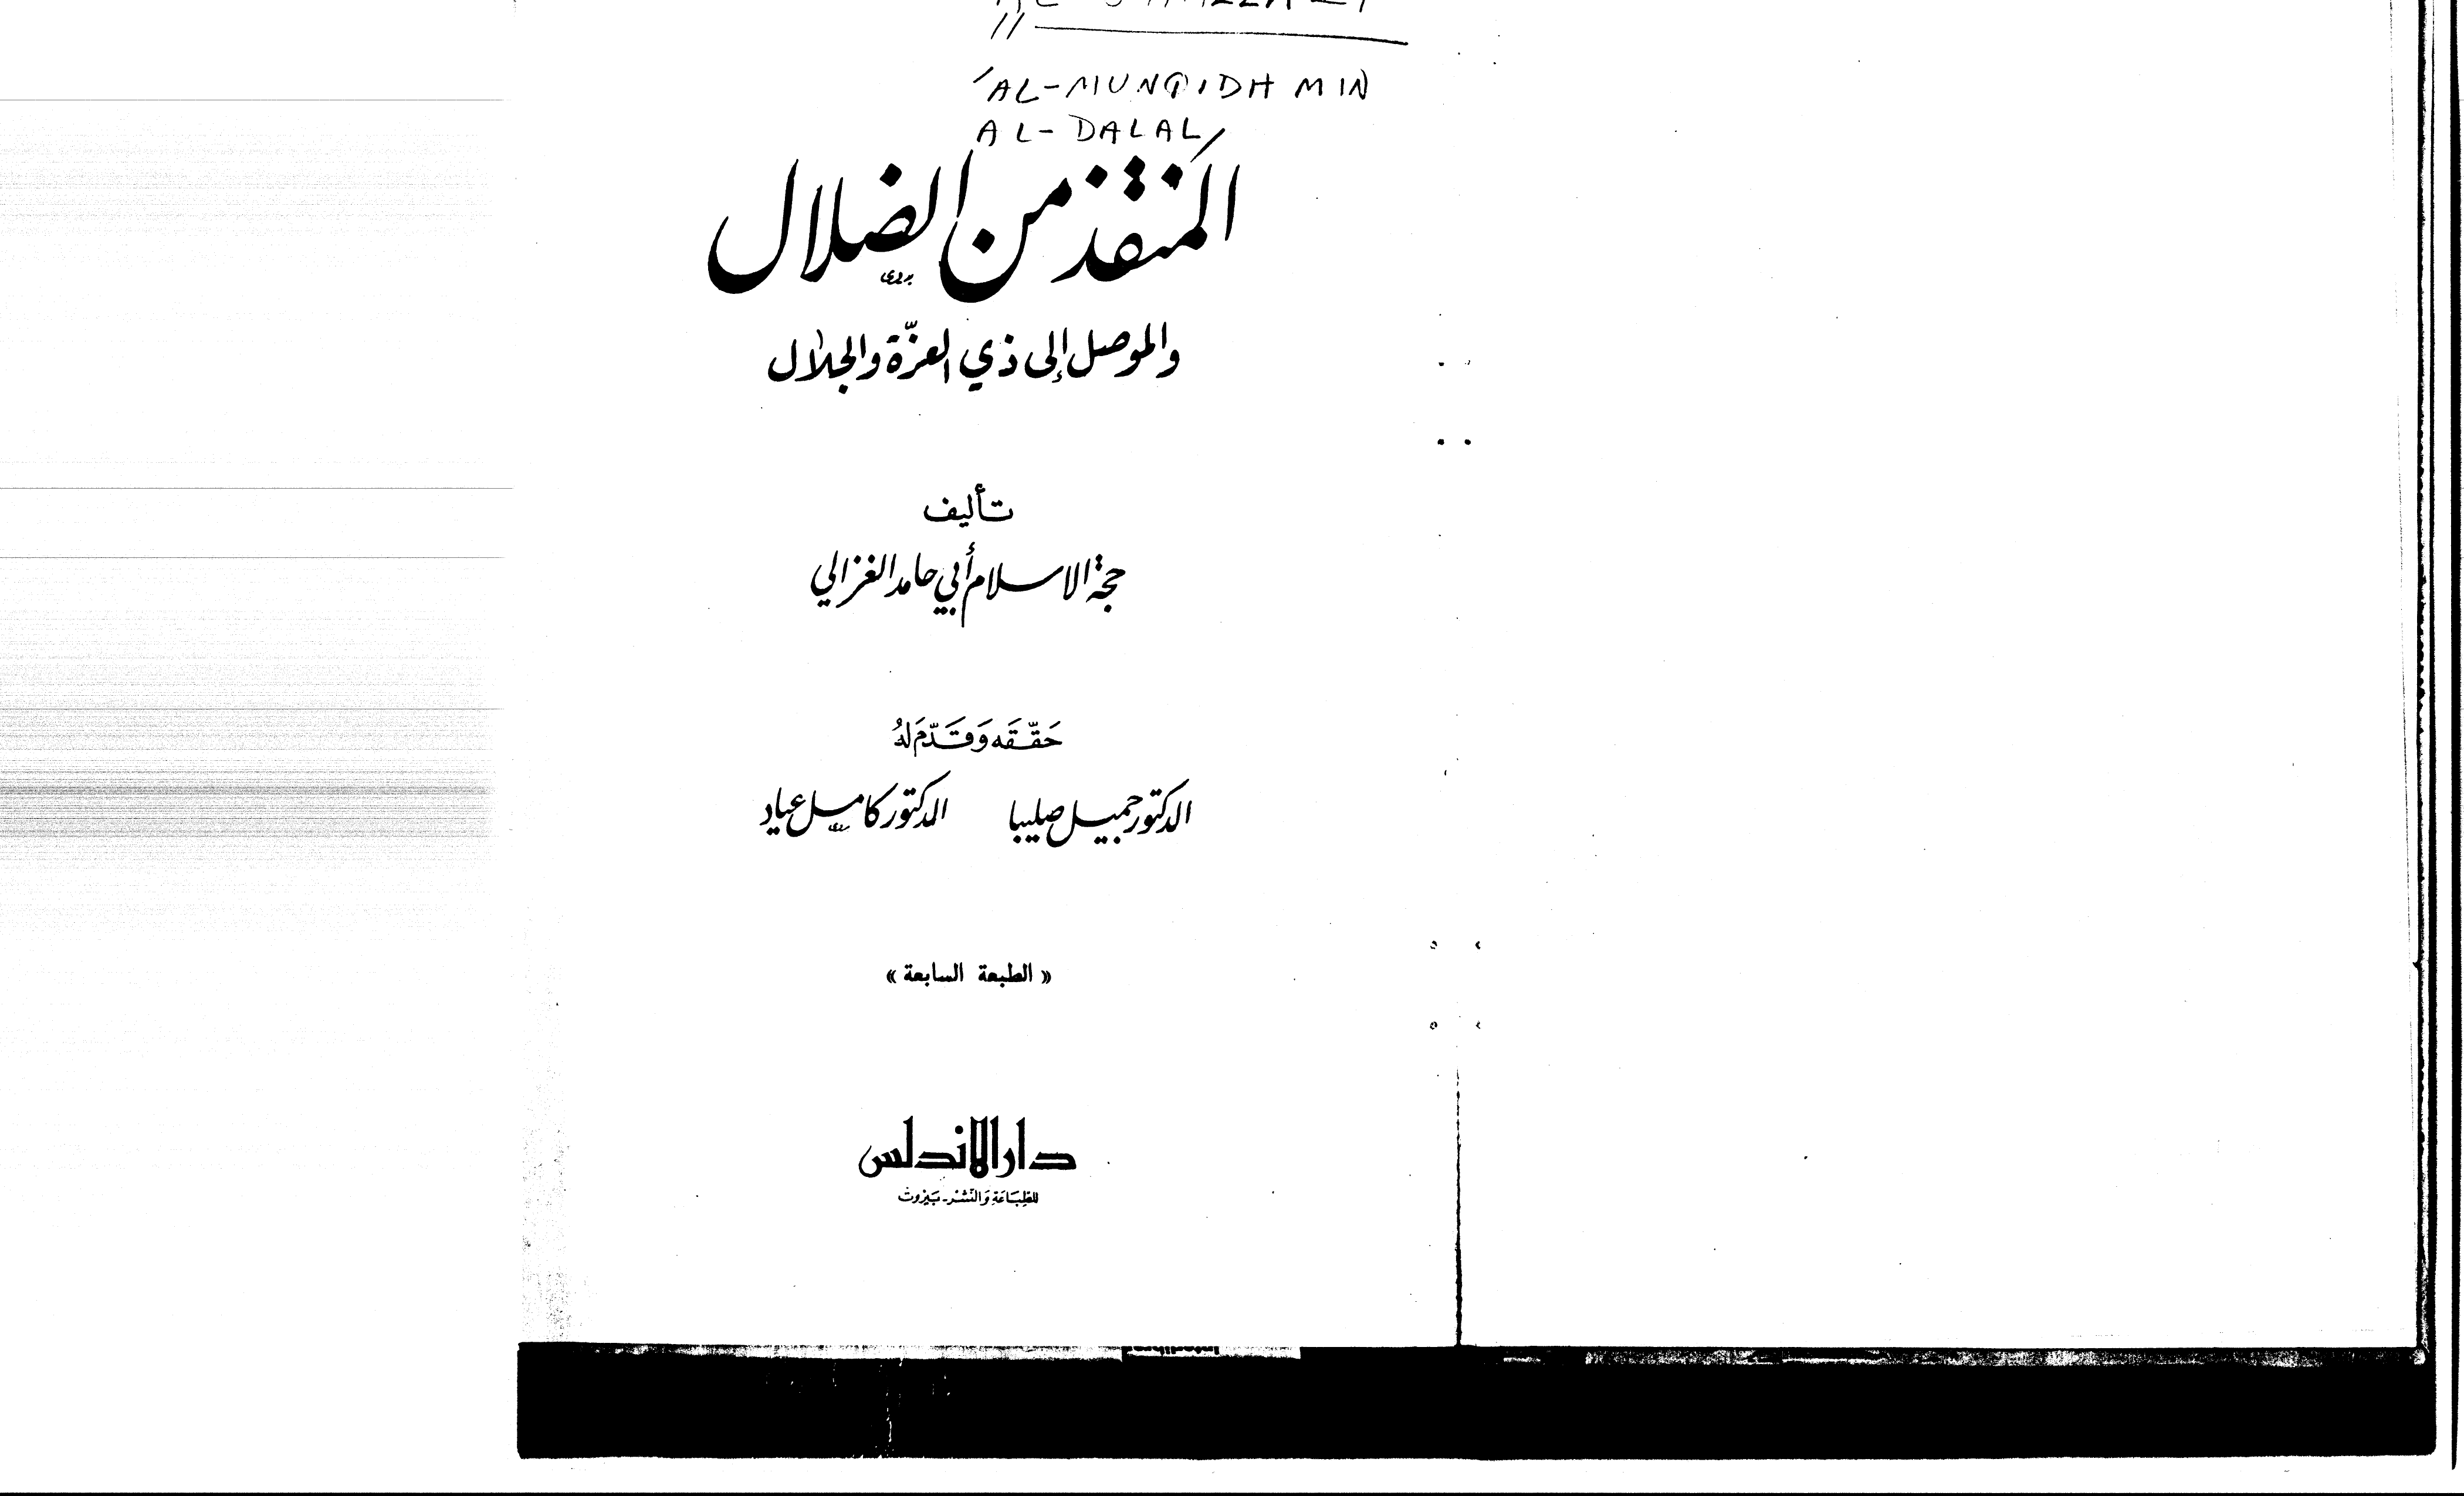 'AL-MUNQIDH MIN
AL-DALAL'
المنقذ من الضلال
والموصل إلى ذي العزّة والجلال
تأليف
حجة الاسلام أبي حامد الغزالي
حَقّقَه وَقَدّمَ لهُ
الدكتور جميل صليبا الدكتور كامل عياد
« الطبعة السابعة »
دار الاندلس
للطِبَاعَة وَالنّشْر - بَيْروت